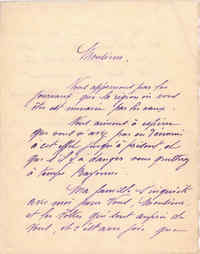 Monsieur,
Nous apprenons par les
journaux que la région où vous
êtes est envahie par les eaux.
Nous aimons à espérer
que vous n'avez pas eu d'ennui
à cet effet jusqu'à présent, et
que s'il y a danger vous quittiez
à temps Bayonne.
Ma famille s'inquiète
avec moi pour vous, Monsieur,
et les vôtres qui sont auprès de
vous, et c'est avec joie que